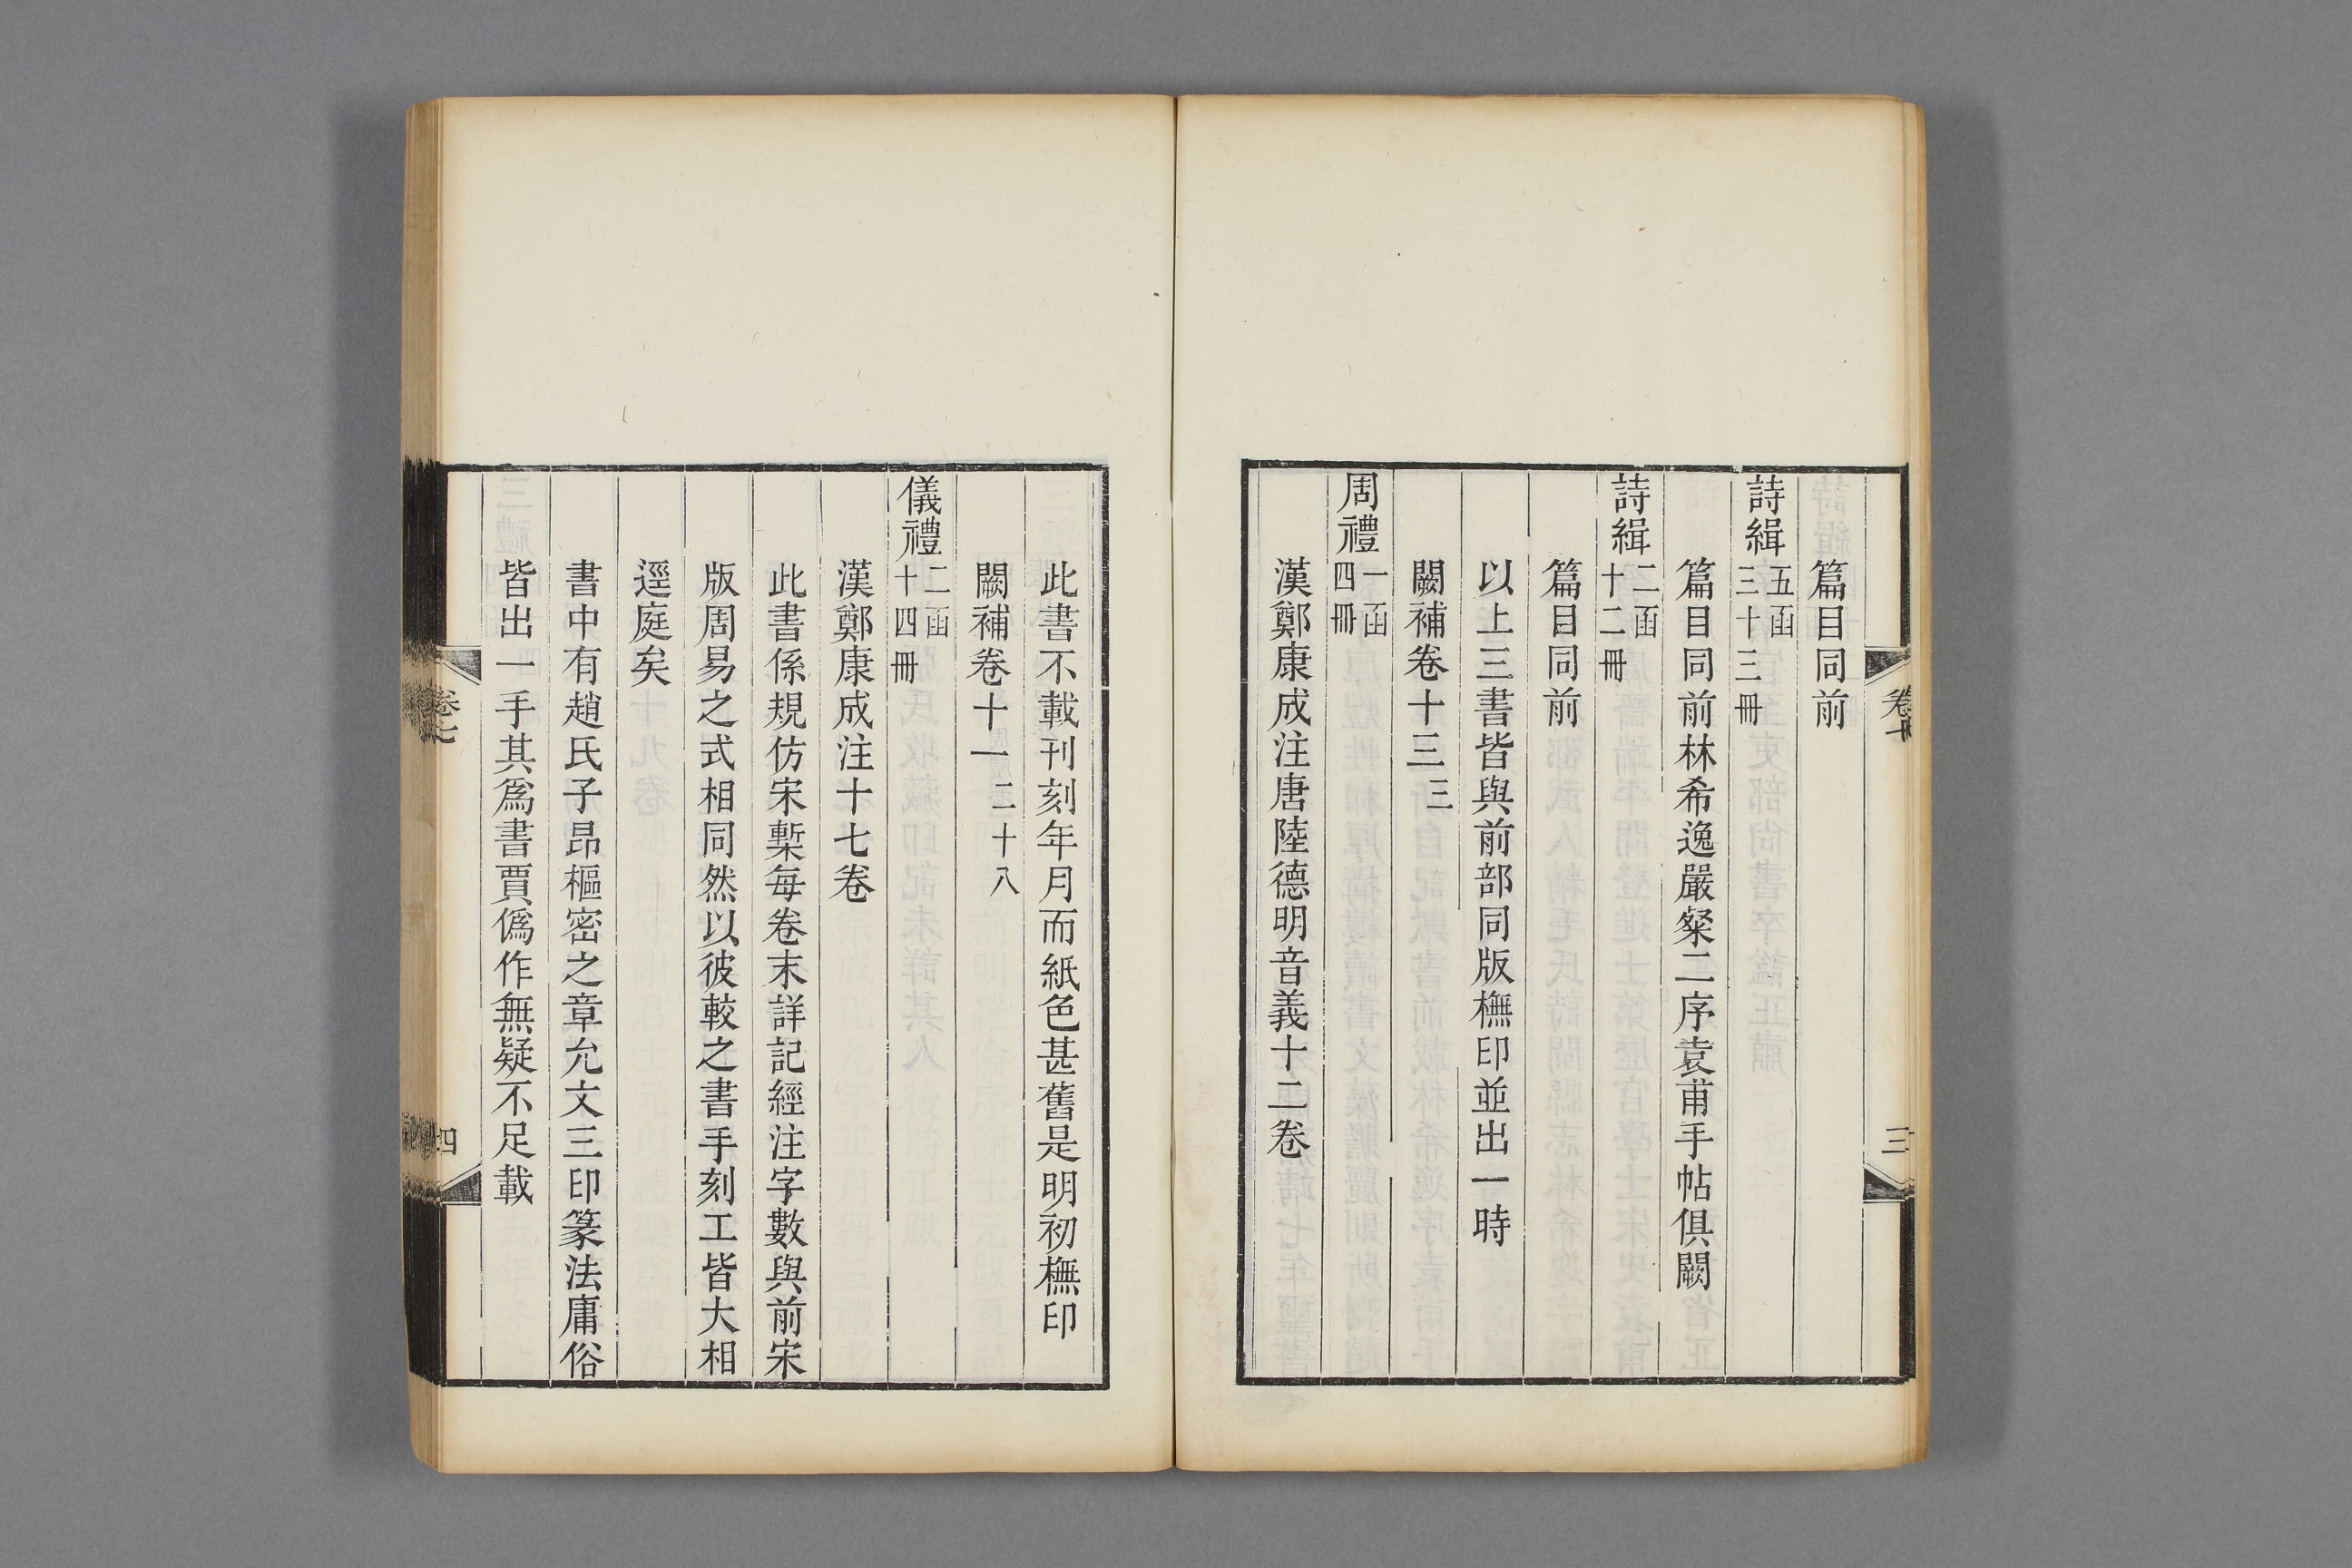 篇目同前
詩緝五函三十三冊
篇目同前林希逸嚴粲二序袁甫手帖俱闕
詩緝二函十二冊
篇目同前
以上三書皆與前部同版橅印並出一時
闕補卷十三三
周禮一函四冊
漢鄭康成注唐陸德明音義十二卷
三
此書不載刊刻年月而紙色甚舊是明初橅印
闕補卷十一二十八
儀禮二函十四冊
漢鄭康成注十七卷
此書係規仿宋槧每卷末詳記經注字數與前宋
版周易之式相同然以彼較之書手刻工皆大相
逕庭矣
書中有趙氏子昂樞密之章允文三印篆法庸俗
皆出一手其爲書賈僞作無疑不足載
卷七
四